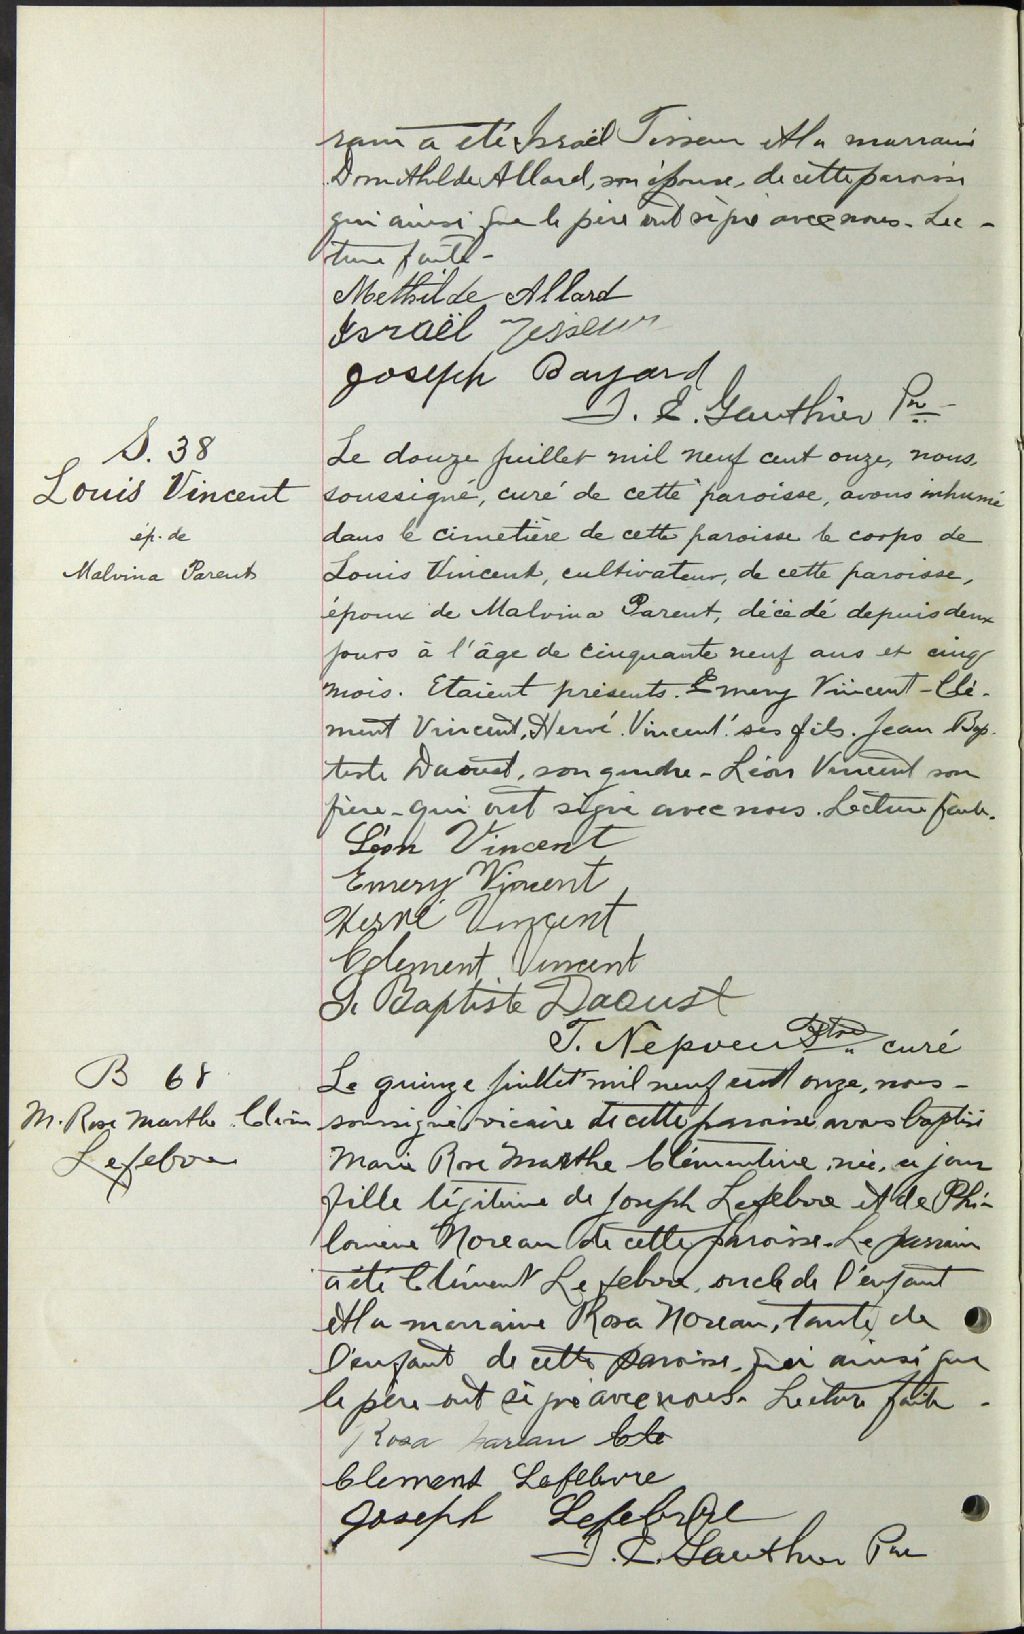 rain a été Israël Tisseur et la marraine
Domithilde Allard, son épouse, de cette paroisse
qui ainsi que le père ont signé avec nous. Lec-
ture faite-
Methilde Allard
Israël Tisseur
Joseph Bayard
J. E. Gauthier Ptre
S. 38
Louis Vincent
ép. de
Malvina Parent
Le douze juillet mil neuf cent onze, nous,
soussigné, curé de cette paroisse, avons inhumé
dans le cimetière de cette paroisse le corps de
Louis Vincent, cultivateur, de cette paroisse,
époux de Malvina Parent, décédé depuis deux
jours à l'âge de cinquante neuf ans et cinq
mois. Etaient présents. Emery Vincent - Clé-
ment Vincent, Hervé Vincent ses fils. Jean Bap-
tiste Daoust, son gendre - Léon Vincent son
frère - qui ont signé avec nous. Lecture faite.
Léon Vincent
Emery Vincent
Hervé Vincent
Clement Vincent
J. Baptiste Daoust
T. Nepveu Ptre curé
B 68
M. Rose Marthe Clém
Lefebvre
Le quinze juillet mil neuf cent onze, nous-
soussigné vicaire de cette paroisse avons baptisé
Marie Rose Marthe Clémentine, née, ce jour
fille légitime de Joseph Lefebvre et de Phi-
lomène Noreau de cette paroisse. Le parrain
a été Clément Lefebvre, oncle de l'enfant
et la marraine Rosa Noreau, tante de
l'enfant de cette paroisse, qui ainsi que
le père ont signé avec nous. Lecture faite.
Rosa
Clement Lefebvre
Joseph Lefebvre
J. E. Gauthier Ptre